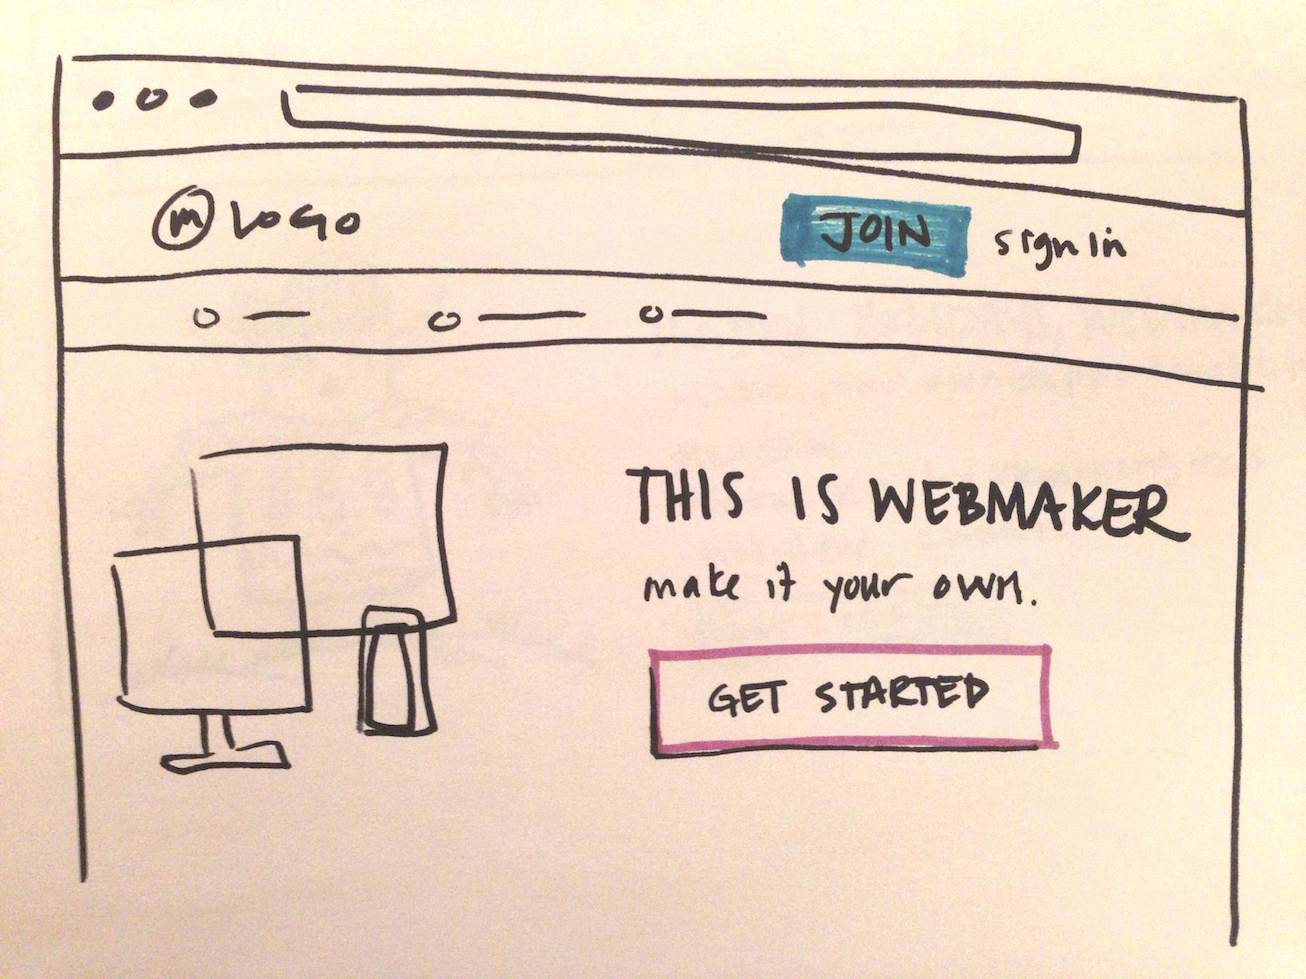 m LOGO
JOIN
sign in
THIS IS WEBMAKER
make it your own.
GET STARTED